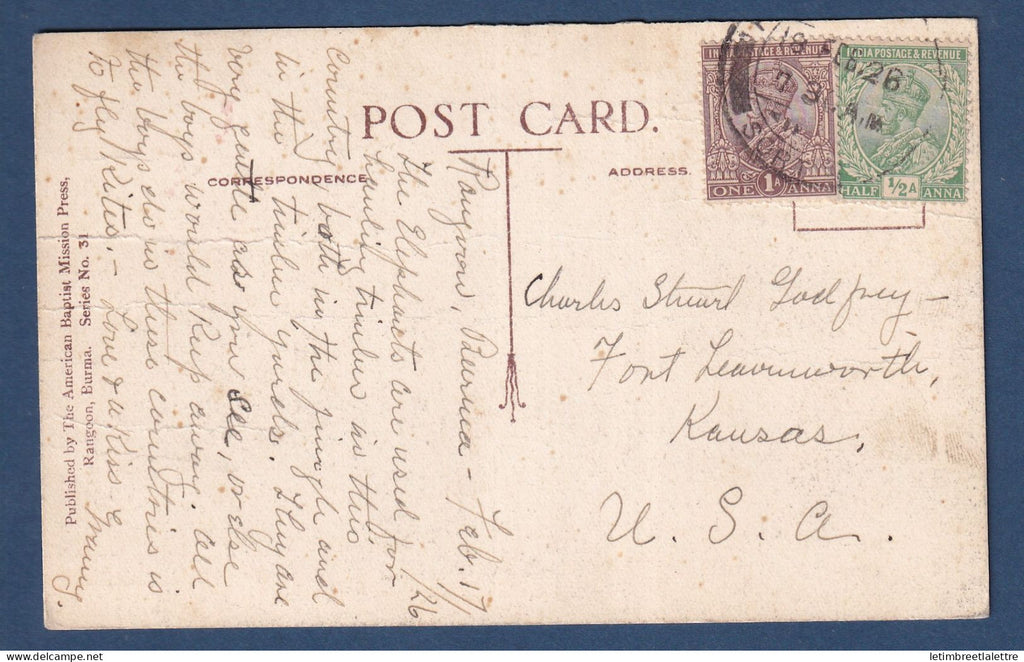 POST CARD.
CORRESPONDENCE
ADDRESS.
INDIA POSTAGE & REVENUE
ONE 1A ANNA
INDIA POSTAGE & REVENUE
HALF 1/2A ANNA
26
A.M
Rangoon, Burma - Feb. 17/26
The Elephants are used for
hauling timber in this
country both in the jungle and
in the timber yards. They are
very gentle as you see, or else
the boys would keep away. all
the boys do in these countries is
to fly Kites. - Love & a Kiss - Granny.
Charles Stuart Godfrey -
Fort Leavenworth,
Kansas,
U. S. A.
Published by The American Baptist Mission Press,
Rangoon, Burma. Series No. 31
letimbreetlalettre